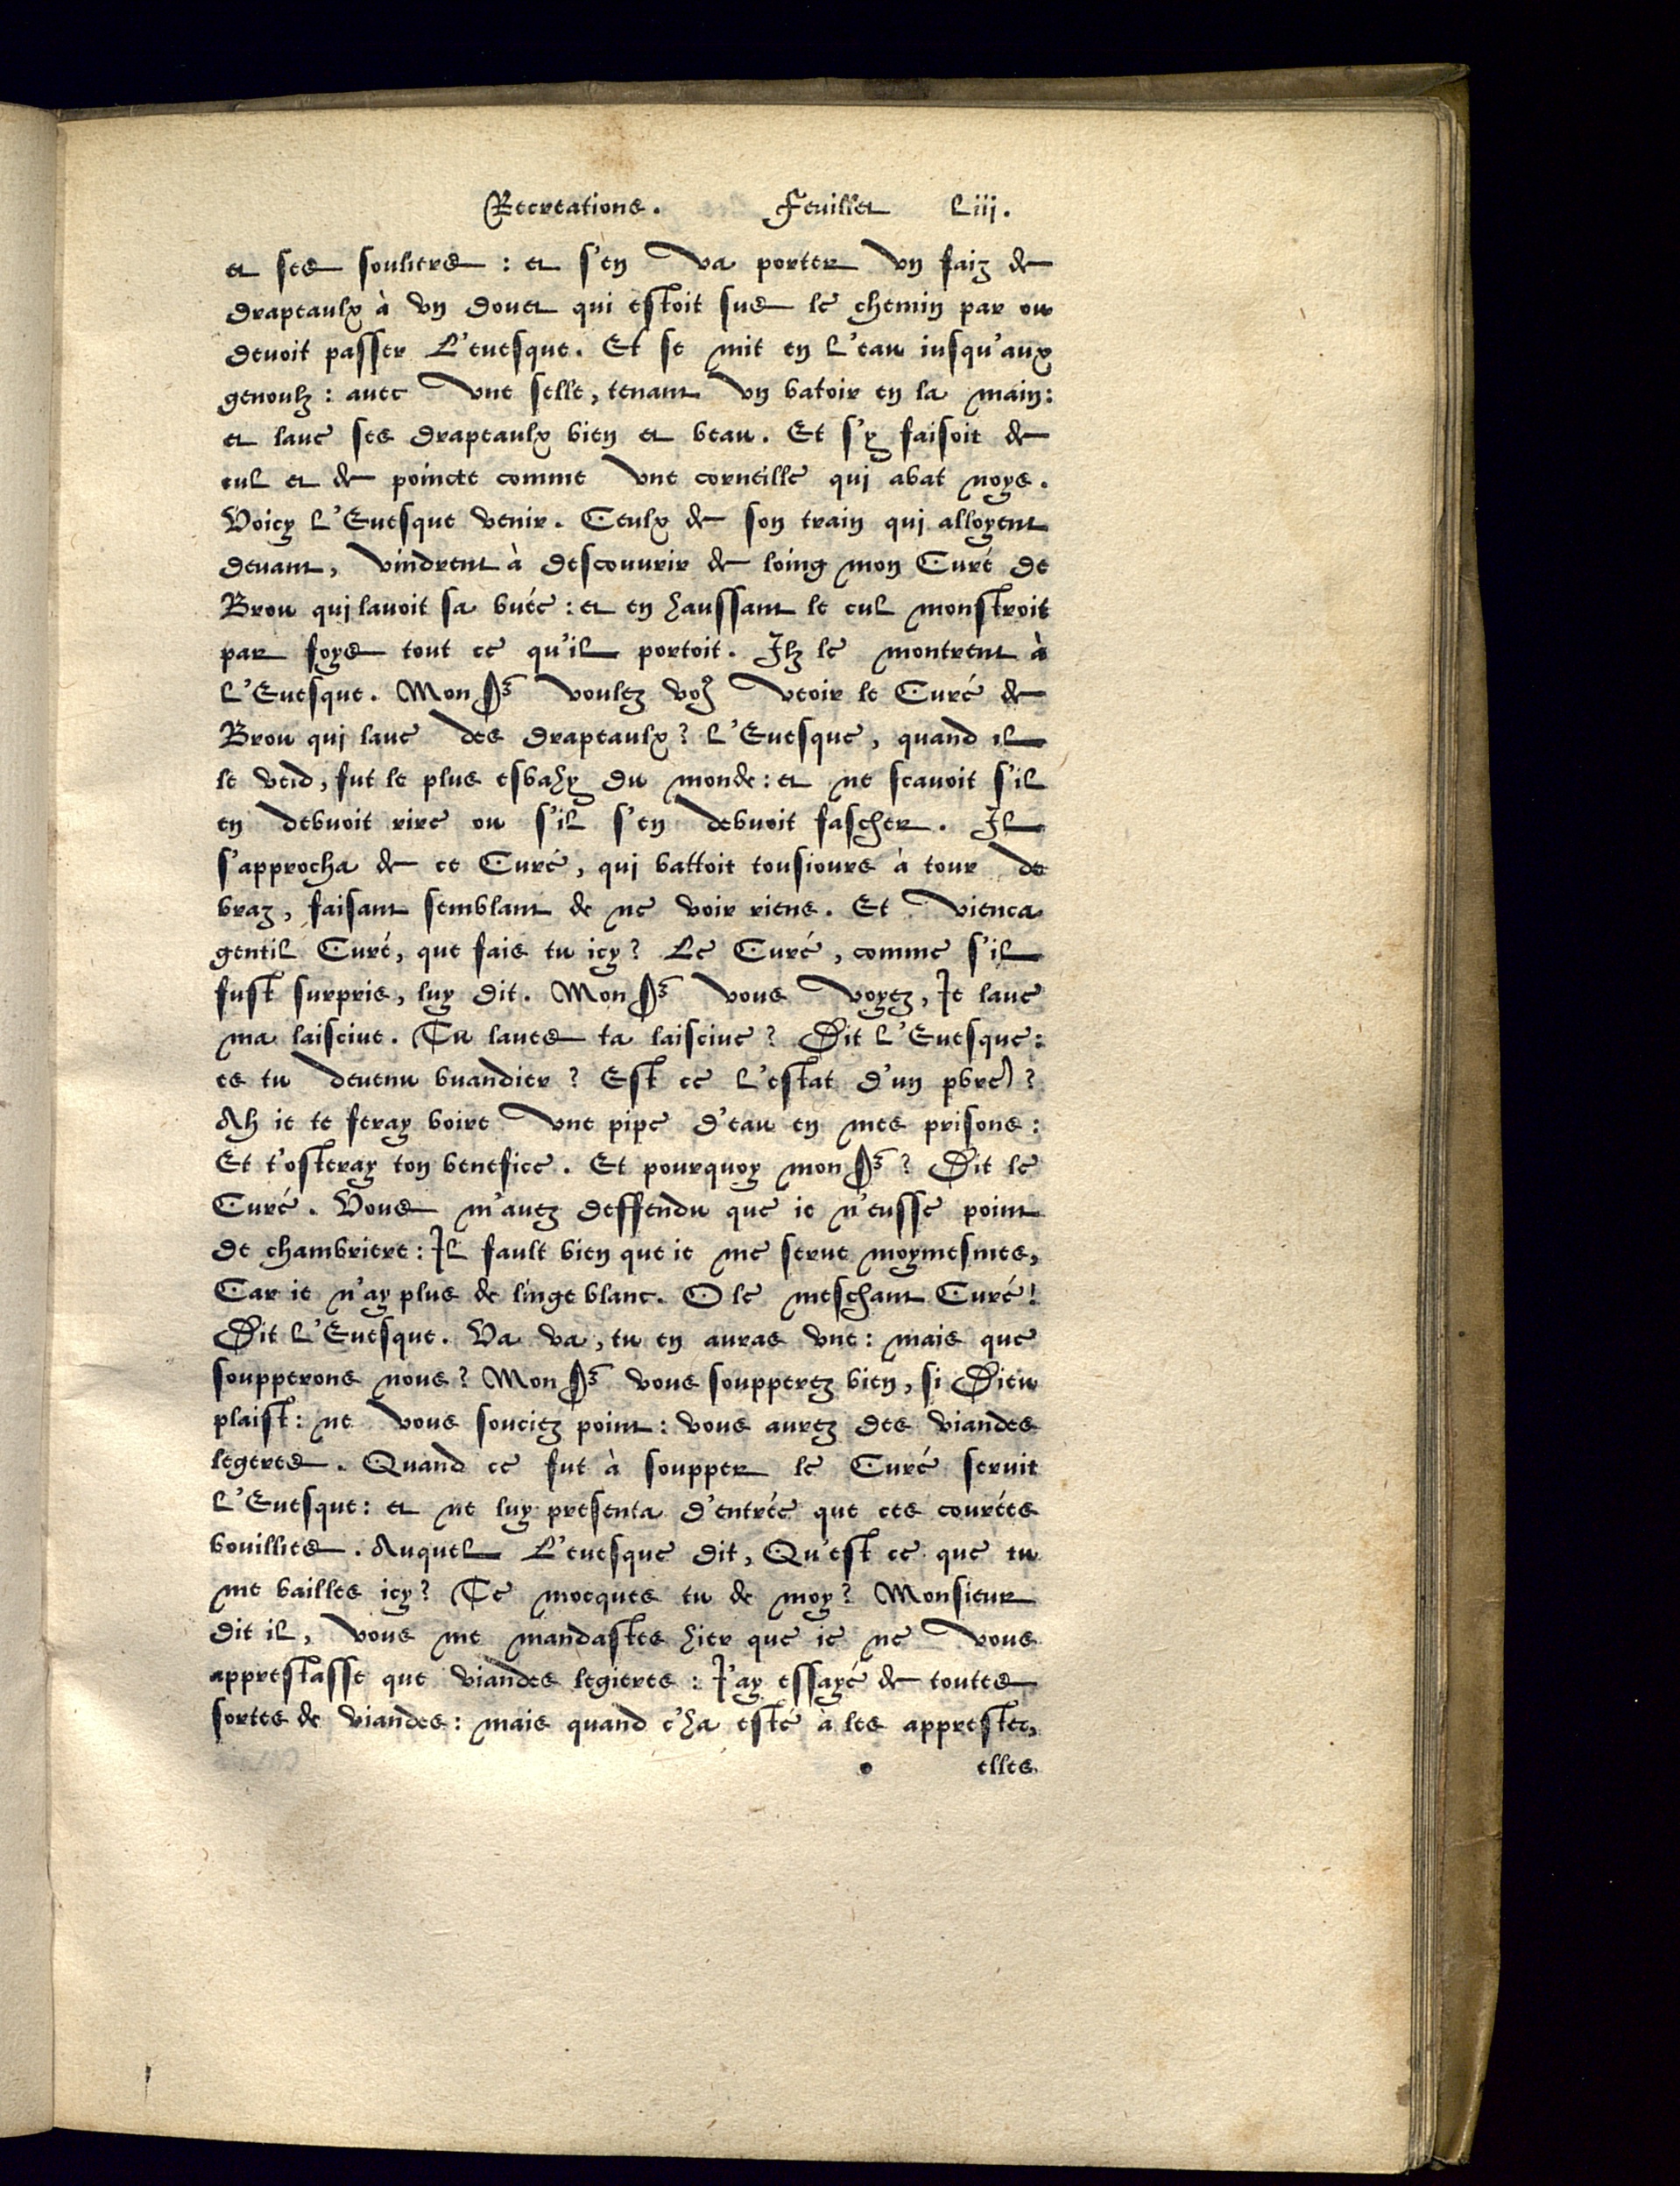 Recreations. Feuillet Liij.
et ses souliers : et s'en va porter vn faiz de
drapeaulx à vn douet qui estoit sus le chemin par ou
deuoit passer L'euesque. Et se mit en l'eau iusqu'aux
genoulz : auec vne selle, tenant vn batoir en la main:
et laue ses drapeaulx bien et beau. Et s'y faisoit de
cul et de poincte comme vne corneille qui abat noys.
Voicy l'Euesque venir. Ceulx de son train qui alloyent
deuant, vindrent à descouurir de loing mon Curé de
Brou qui lauoit sa buée : et en haussant le cul monstroit
par foys tout ce qu'il portoit. Ilz le montrent à
l'Euesque. Mon Sr voulez voꝰ veoir le Curé de
Brou qui laue des drapeaulx? l'Euesque, quand il
le veid, fut le plus esbahy du monde: et ne scauoit s'il
en debuoit rire ou s'il s'en debuoit fascher. Il
s'approcha de ce Curé, qui battoit tousiours à tour de
braz, faisant semblant de ne voir riens. Et vienca
gentil Curé, que fais tu icy? Le Curé, comme s'il
fust surpris, luy dit. Mon Sr vous voyez, Ie laue
ma laisciue. Tu laues ta laisciue? Dit l'Euesque:
es tu deuenu buandier? Est ce l'estat d'un pbre?
Ah ie te feray boire vne pipe d'eau en mes prisons:
Et t'osteray ton benefice. Et pourquoy mon Sr? Dit le
Curé. Vous m'auez deffendu que ie n'eusse point
de chambriere: Il fault bien que ie me serue moymesmes,
Car ie n'ay plus de linge blanc. O le meschant Curé!
Dit l'Euesque. Va va, tu en auras vne: mais que
soupperons nous? Mon Sr vous soupperez bien, si Dieu
plaist: ne vous souciez point: vous aurez des viandes
legeres. Quand ce fut à soupper le Curé seruit
l'Euesque: et ne luy presenta d'entrée que ces courées
bouillies. Auquel L'euesque dit, Qu'est ce que tu
me bailles icy? Te mocques tu de moy? Monsieur
dit il, vous me mandastes hier que ie ne vous
apprestasse que viandes legieres: I'ay essayé de toutes
sortes de viandes: mais quand c'ha esté à les apprester,
elles